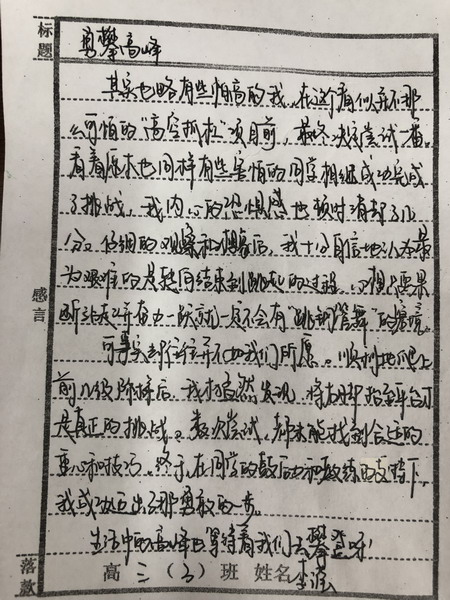 标题
勇攀高峰
其实也略有些怕高的我，在这个看似并不那
么可怕的“高空抓杠”项目前，最终决定尝试一番。
看着原本也同样有些害怕的同学相继成功完成
了挑战，我内心的恐惧感也顿时消却了几
分。仔细的观察和想象后，我十分自信地认为最
为艰难的是瞬间结束到跳起的过程，心想只要果
断站起并奋力一跃就一定不会有“跳钢管舞”的窘境。
可事实却往往并不如我们所愿。顺利地爬上
前几级阶梯后，我才自然发现，将右脚抬至平台才
是真正的挑战。数次尝试，都未能找到合适的
重心和技巧。终于，在同学的鼓励和教练的支持下，
我成功迈出了那勇敢的一步。
生活中的高峰也等待着我们去攀登呀！
感言
落款
高三（3）班 姓名 李